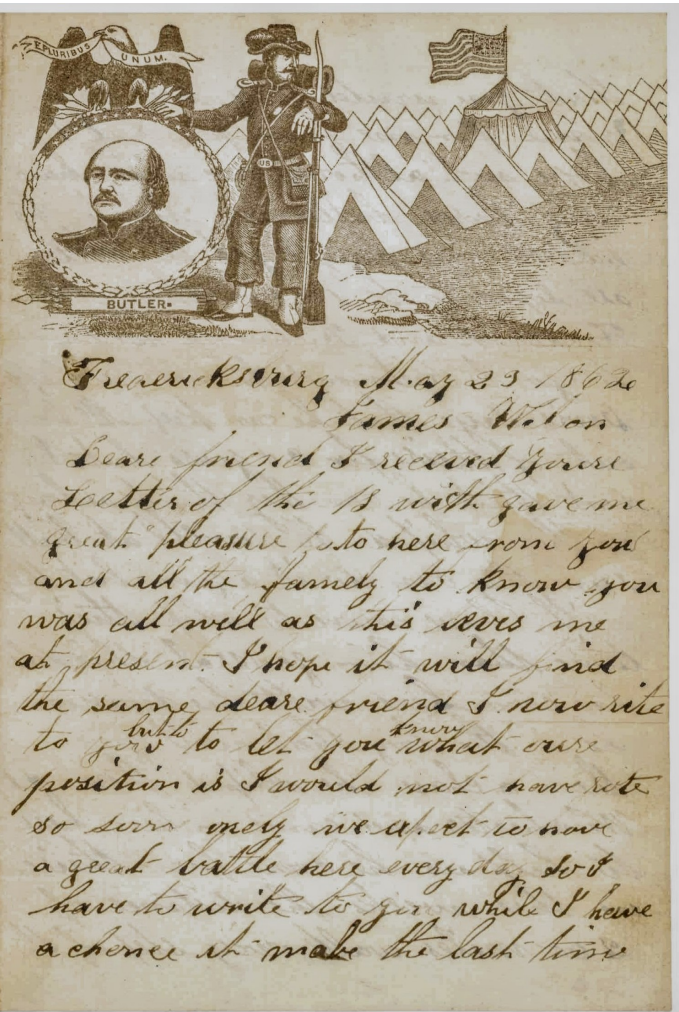 E PLURIBUS UNUM.
US
BUTLER.
Fredericksburg May 23 1862
James
Deare friend I receved youre
Letter of the 15 wich gave me
great pleasure to here from you
and all the famely to know you
was all well as this leves me
at present. I hope it will find
the same deare friend I now rite
to you but to to let you know what oure
position is I would not have rote
so soon onely we expect to have
a great battle here every day so I
have to write to you while I have
a chence it make the last time